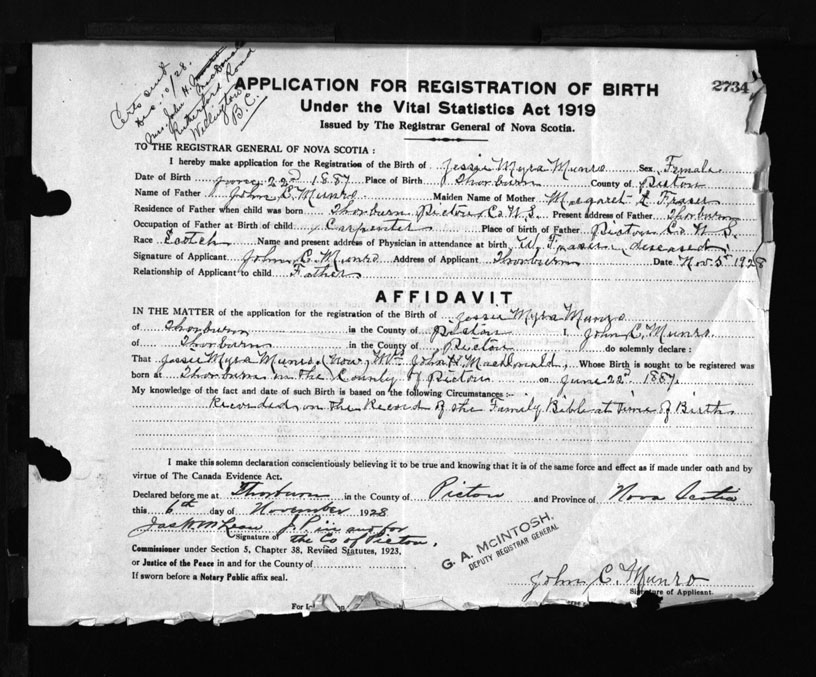 Certs sent
Dec. 10/28.
Mrs. John H. MacDonald
Rutherford Road
Wellington
B.C.
APPLICATION FOR REGISTRATION OF BIRTH 2734
Under the Vital Statistics Act 1919
Issued by The Registrar General of Nova Scotia.
TO THE REGISTRAR GENERAL OF NOVA SCOTIA :
I hereby make application for the Registration of the Birth of Jessie Myra Munro Sex Female
Date of Birth June 22nd 1887 Place of Birth Thorburn County of Pictou
Name of Father John C. Munro Maiden Name of Mother Margaret E Fraser
Residence of Father when child was born Thorburn Pictou Co N.S. Present address of Father Thorburn
Occupation of Father at Birth of child Carpenter Place of Birth of Father Pictou Co N.S.
Race Scotch Name and present address of Physician in attendance at birth W. Fraser (deseased)
Signature of Applicant John C. Munro Address of Applicant Thorburn Date Nov. 5th 1928
Relationship of Applicant to child Father
AFFIDAVIT
IN THE MATTER of the application for the registration of the Birth of Jessie Myra Munro
of Thorburn in the County of Pictou I, John C. Munro
of Thorburn in the County of Pictou do solemnly declare :
That Jessie Myra Munro (now) Mrs John H. MacDonald, Whose Birth is sought to be registered was
born at Thorburn in the County of Pictou on June 22nd 1887.
My knowledge of the fact and date of such Birth is based on the following Circumstances :-
Recorded on the Record of the Family Bible at time of Birth
I make this solemn declaration conscientiously believing it to be true and knowing that it is of the same force and effect as if made under oath and by
virtue of The Canada Evidence Act.
Declared before me at Thorburn in the County of Pictou and Province of Nova Scotia
this 6th day of November 1928
Jas W McLean J.P. in and for
Signature of the Co of Pictou.
Commissioner under Section 5, Chapter 38, Revised Statutes, 1923.
or Justice of the Peace in and for the County of
If sworn before a Notary Public affix seal.
G. A. McINTOSH,
DEPUTY REGISTRAR GENERAL
John C. Munro
Signature of Applicant.